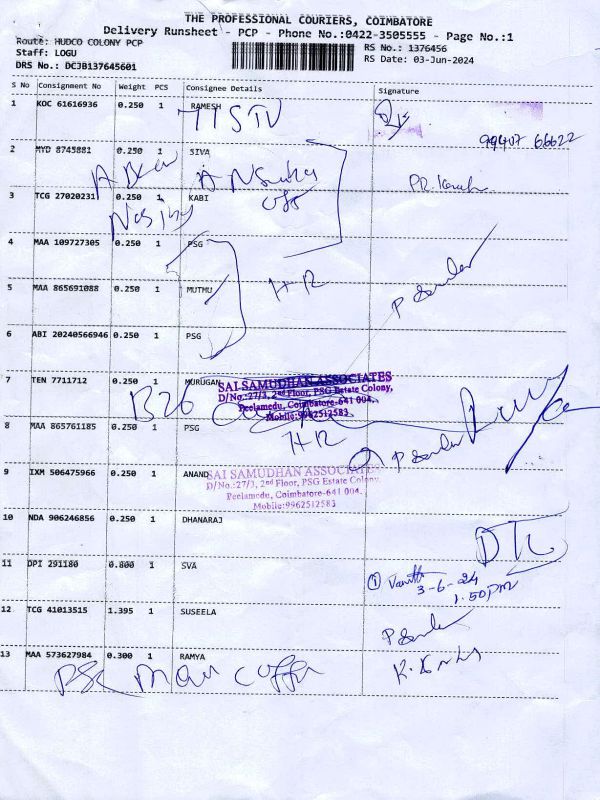 THE PROFESSIONAL COURIERS, COIMBATORE
Delivery Runsheet - PCP - Phone No.:0422-3505555 - Page No.:1
Route: HUDCO COLONY PCP
Staff: LOGU
DRS No.: DCJB137645601
RS No.: 1376456
RS Date: 03-Jun-2024
S No Consignment No Weight PCS Consignee Details Signature
1 KOC 61616936 0.250 1 RAMESH
99407 66622
2 MYD 8745881 0.250 1 SIVA
3 TCG 27020231 0.250 1 KABI
4 MAA 109727305 0.250 1 PSG
5 MAA 865691088 0.250 1 MUTHU
HR
6 ABI 20240566946 0.250 1 PSG
7 TEN 7711712 0.250 1 MURUGAN
SAI SAMUDHAN ASSOCIATES
D/No.:27/3, 2nd Floor, PSG Estate Colony,
Peelamedu, Coimbatore-641 004.
Mobile:9962512583
B26
8 MAA 865761185 0.250 1 PSG
HR
9 IXM 506475966 0.250 1 ANAND
SAI SAMUDHAN ASSOCIATES
D/No.:27/3, 2nd Floor, PSG Estate Colony,
Peelamedu, Coimbatore-641 004.
Mobile:9962512583
10 NDA 906246856 0.250 1 DHANARAJ
11 DPI 291180 0.800 1 SVA
3-6-24
1.50PM
12 TCG 41013515 1.395 1 SUSEELA
13 MAA 573627984 0.300 1 RAMYA